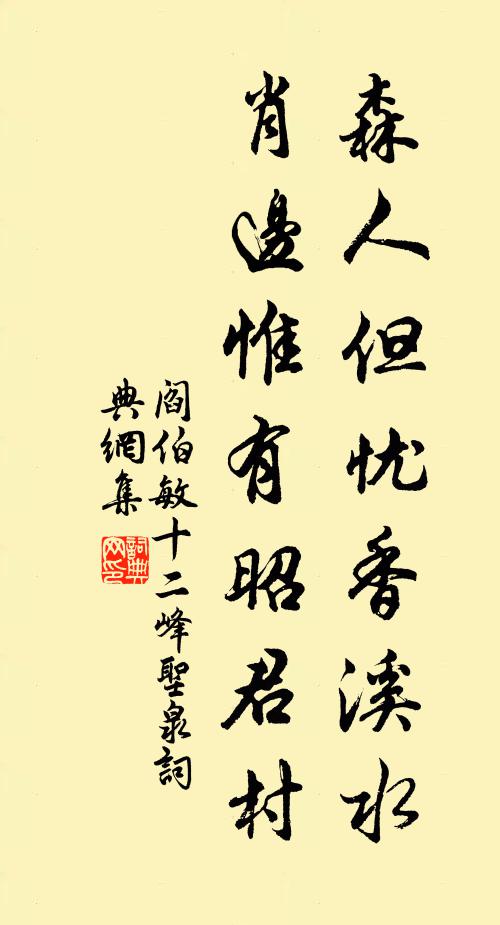 森人但忧香溪水
肖邊惟有昭君村
閻伯敏十二峰聖泉詞
典網集
詞典
网印